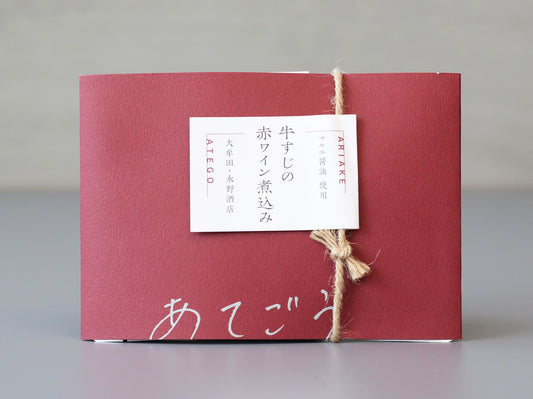 ARIAKE
マルヱ醤油 使用
牛すじの
赤ワイン煮込み
大牟田・永野酒店
ATEGO
あてごう